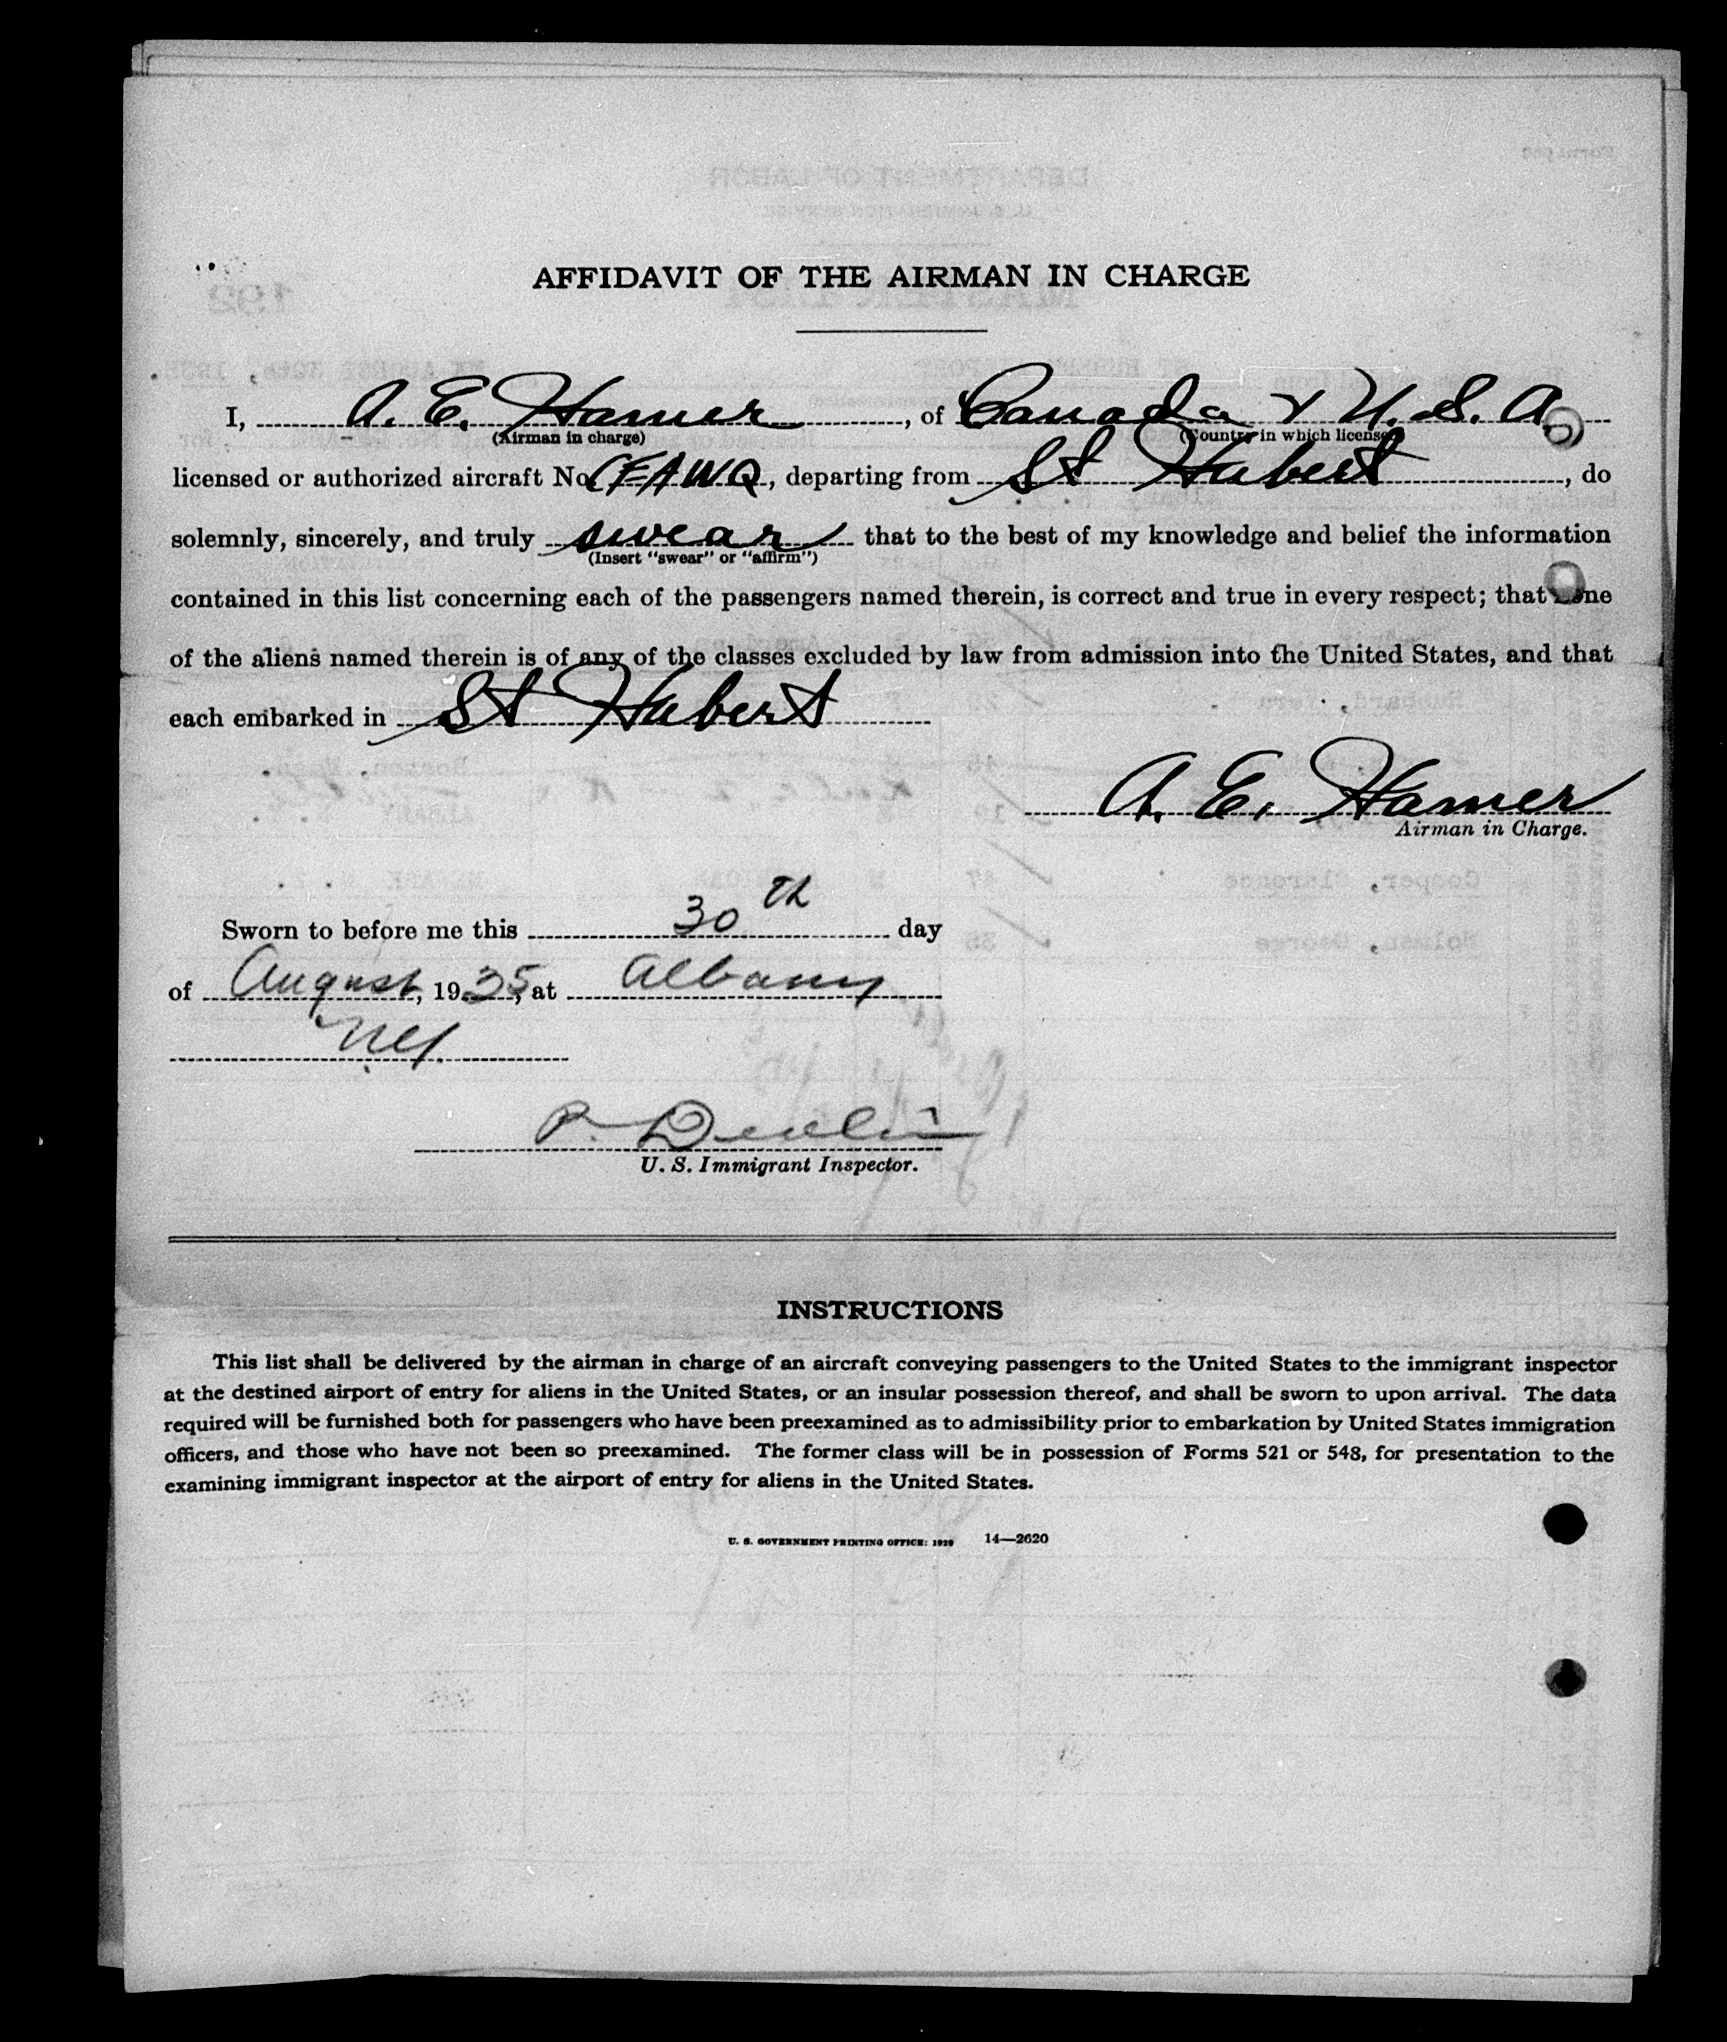 AFFIDAVIT OF THE AIRMAN IN CHARGE
I, A. E. Hamer, of Canada & U. S. A.
(Airman in charge) (Country in which licensed)
licensed or authorized aircraft No. CFAWQ, departing from St Hubert, do
solemnly, sincerely, and truly swear that to the best of my knowledge and belief the information
(Insert "swear" or "affirm")
contained in this list concerning each of the passengers named therein, is correct and true in every respect; that none
of the aliens named therein is of any of the classes excluded by law from admission into the United States, and that
each embarked in St Hubert
A. E. Hamer
Airman in Charge.
Sworn to before me this 30th day
of August, 1935, at Albany
N.Y.
P. Devlin
U. S. Immigrant Inspector.
INSTRUCTIONS
This list shall be delivered by the airman in charge of an aircraft conveying passengers to the United States to the immigrant inspector
at the destined airport of entry for aliens in the United States, or an insular possession thereof, and shall be sworn to upon arrival. The data
required will be furnished both for passengers who have been preexamined as to admissibility prior to embarkation by United States immigration
officers, and those who have not been so preexamined. The former class will be in possession of Forms 521 or 548, for presentation to the
examining immigrant inspector at the airport of entry for aliens in the United States.
U. S. GOVERNMENT PRINTING OFFICE: 1929 14—2620